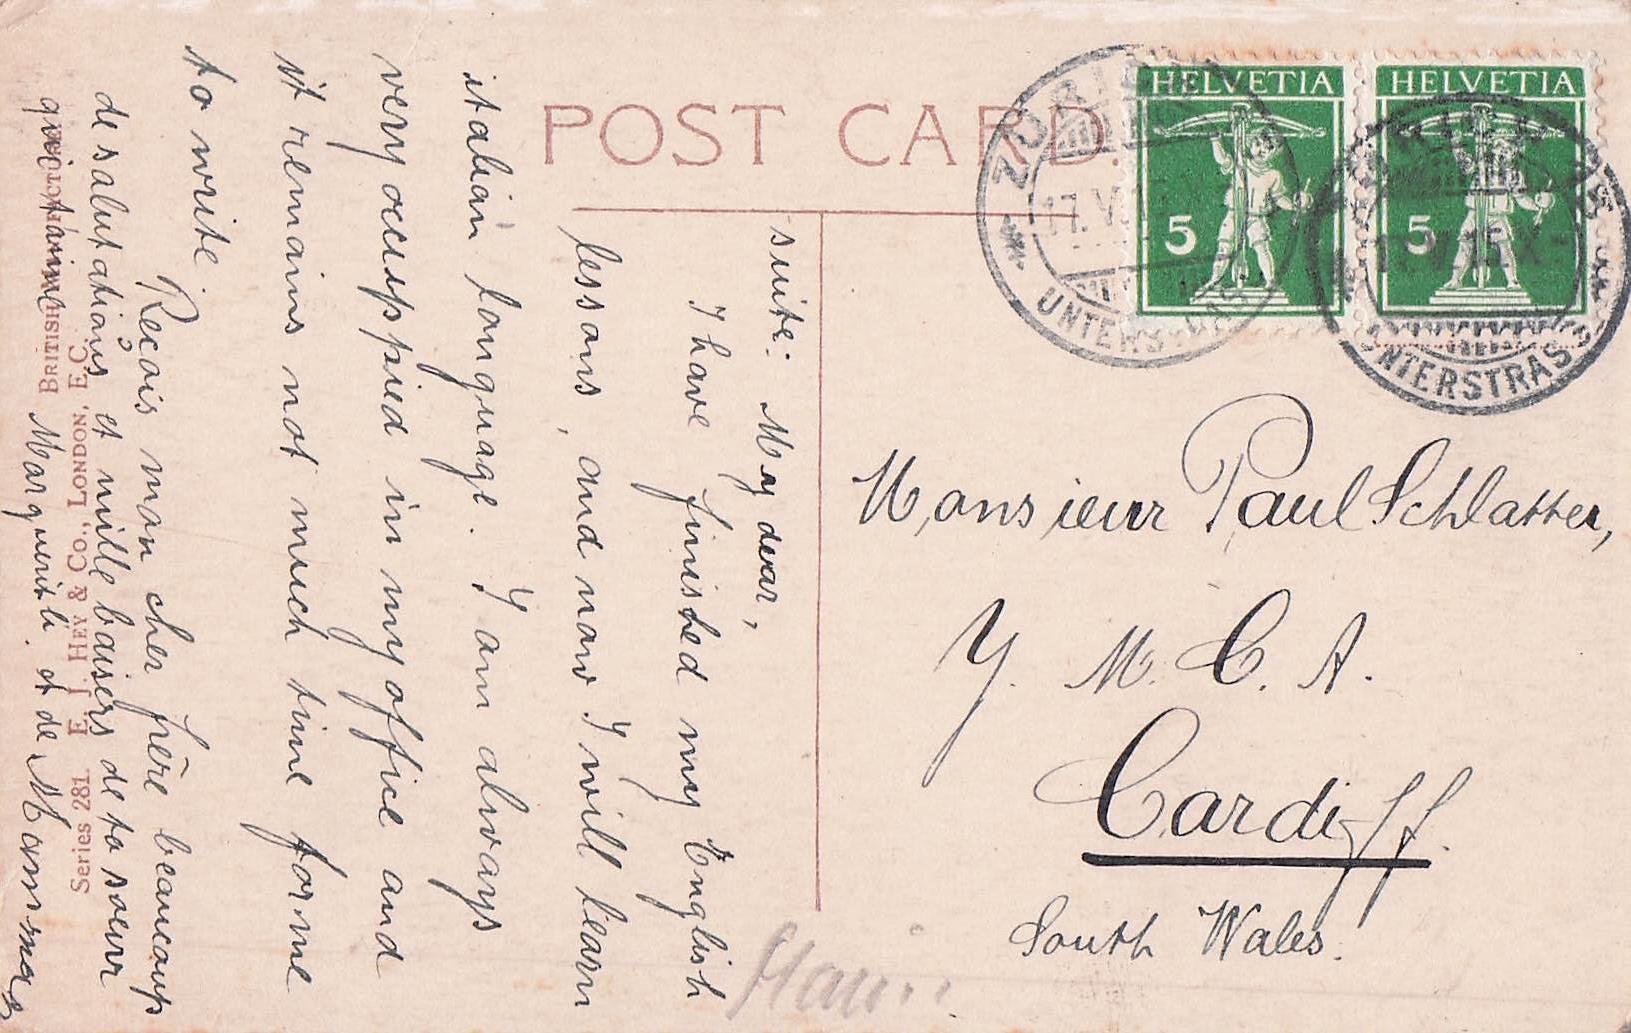 POST CARD.
HELVETIA
5
HELVETIA
5
ZÜRICH
17. V.
UNTERSTRASS
17. V. 15. X-
UNTERSTRASS
suite. My dear,
I have finished my English
lessons, and now I will learn
italian longuage. I am always
very occuppied in my office and
it remains not much time for me
to write.
Reçois mon cher frère beaucoup
de salutations et mille baisers de ta soeur
qui t'aime Marguerite. et de Maman
Monsieur Paul Schlatter,
Y. M. C. A.
Cardiff.
South Wales.
BRITISH MANUFACTURE
Series 281. E. J. HEY & CO., LONDON, E.C.